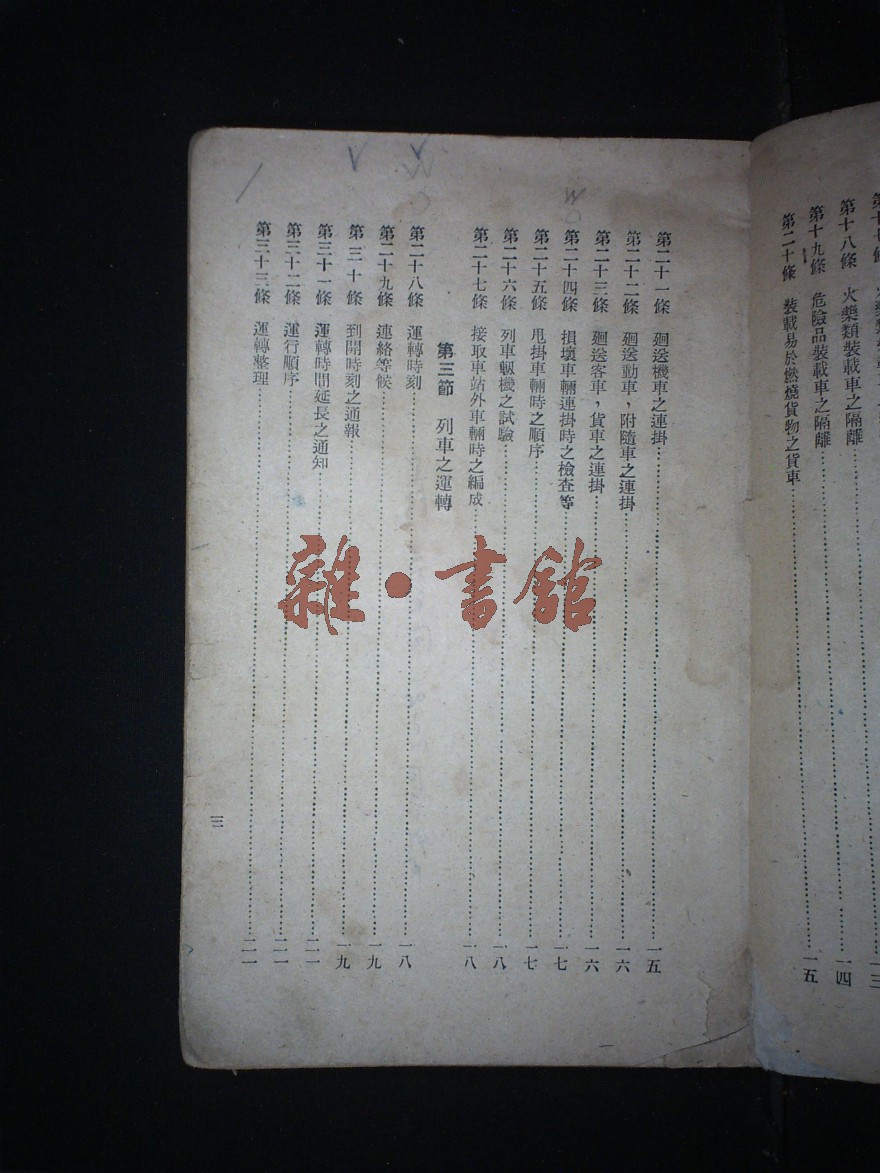 第十八條　火藥類裝載車之隔離……一四
第十九條　危險品裝載車之隔離
第二十條　裝載易於燃燒貨物之貨車……一五
第二十一條　廻送機車之連掛……一五
第二十二條　廻送動車，附隨車之連掛……一六
第二十三條　廻送客車，貨車之連掛……一六
第二十四條　損壞車輛連掛時之檢查等……一七
第二十五條　甩掛車輛時之順序……一七
第二十六條　列車軔機之試驗……一八
第二十七條　接取車站外車輛時之編成……一八
第三節　列車之運轉
第二十八條　運轉時刻……一八
第二十九條　連絡等候……一九
第三十條　到開時刻之通報……一九
第三十一條　運轉時間延長之通知……二一
第三十二條　運行順序……二一
第三十三條　運轉整理……二一
三
雜·書館